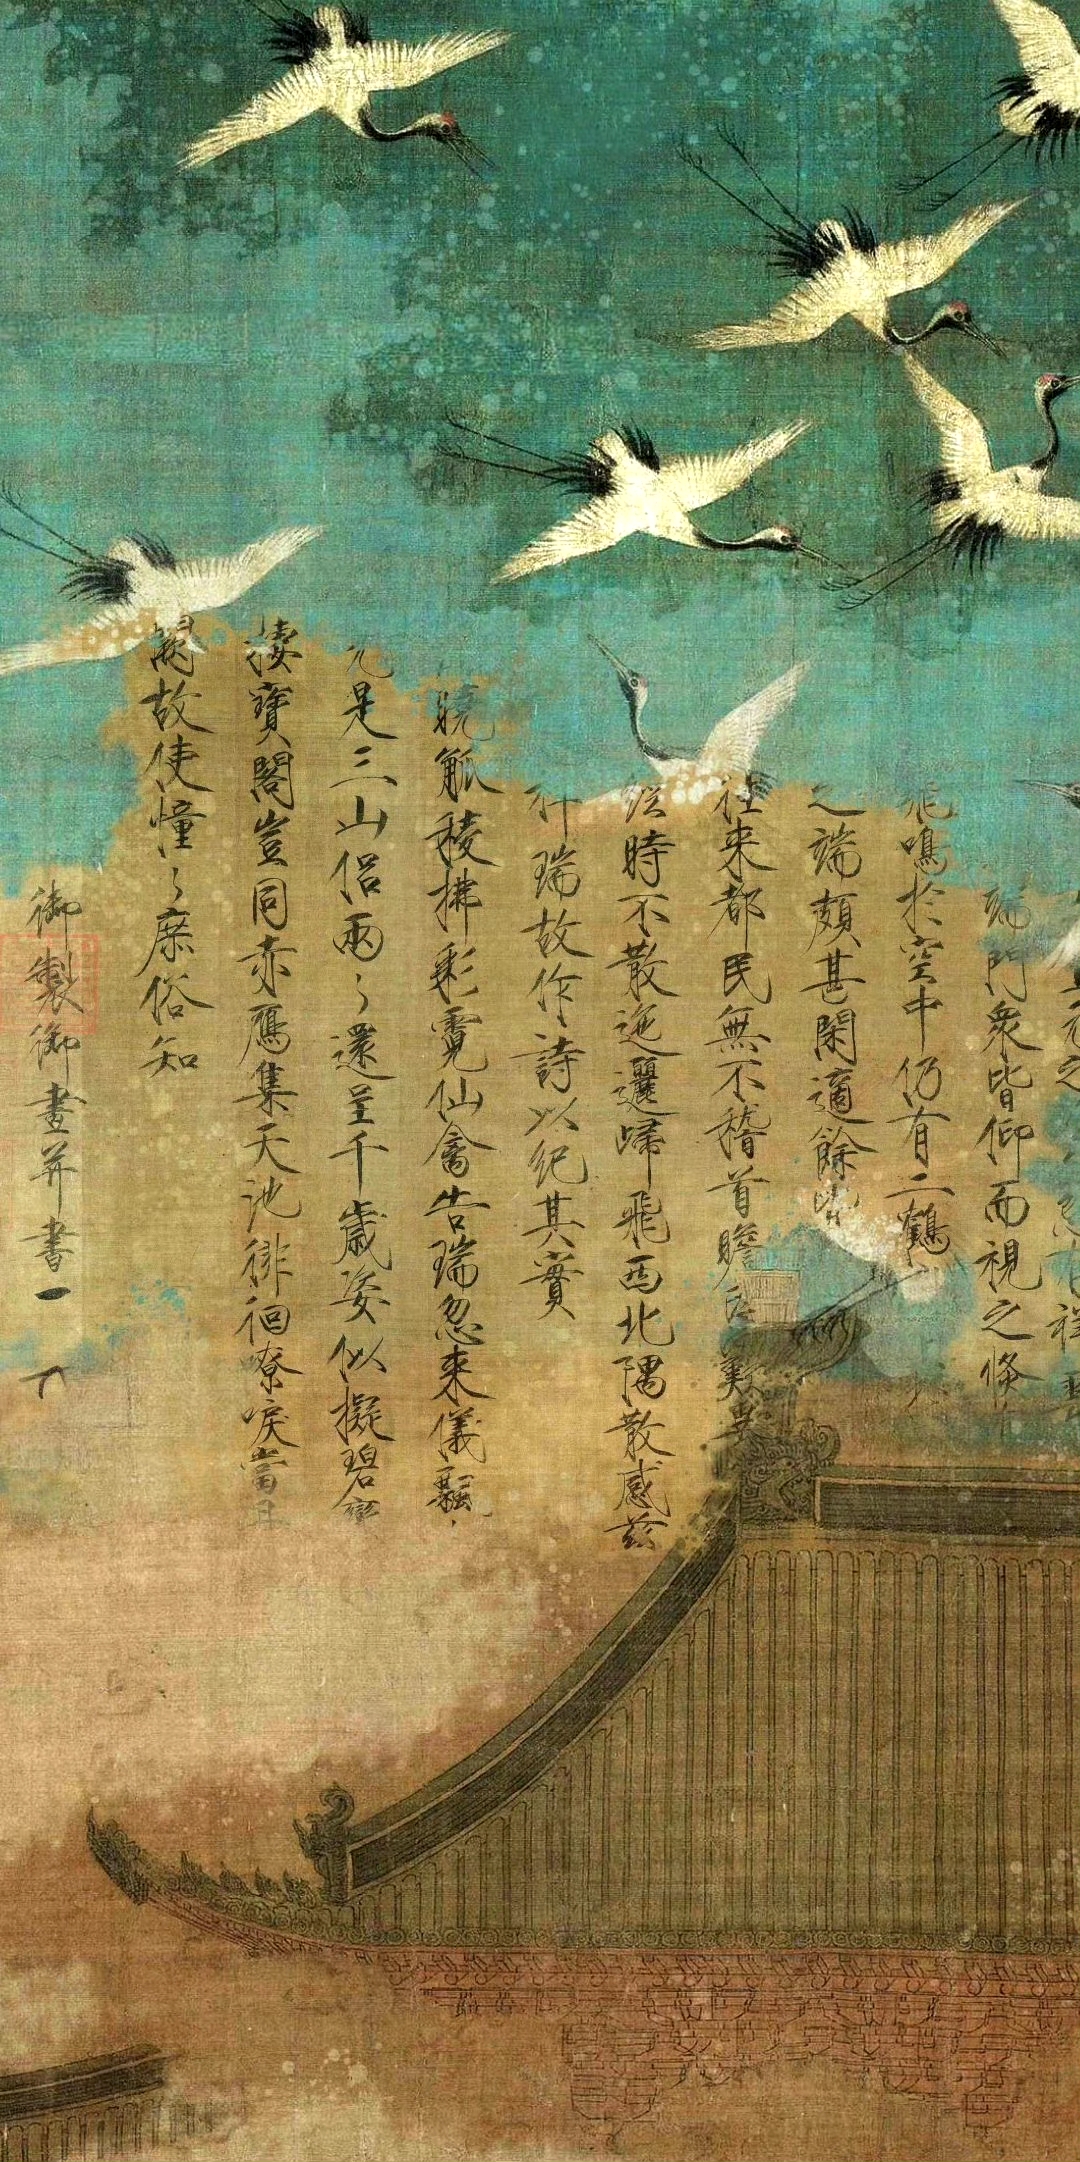 元之
端門衆皆仰而視之倏
飛鳴於空中仍有二鶴
之端頗甚閑適餘
往來都民無不稽首瞻
經時不散迤邐歸飛西北隅散感茲
祥瑞故作詩以紀其實
曉觚稜拂彩霓仙禽告瑞忽來儀飄
元是三山侶兩〻還呈千歲姿似擬碧鸞
棲寶閣豈同赤鴈集天池徘徊嘹唳當丹
闕故使憧〻庶俗知
御製御畫并書